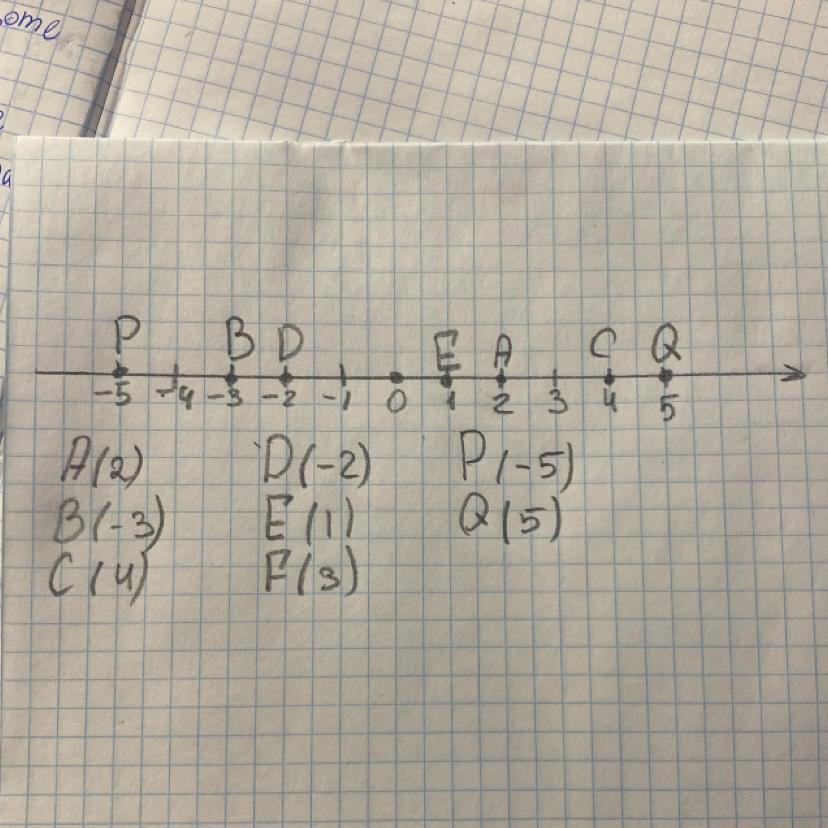 ome
P B D E A C Q
-5 -4 -3 -2 -1 0 1 2 3 4 5
A(2) D(-2) P(-5)
B(-3) E(1) Q(5)
C(4) F(3)